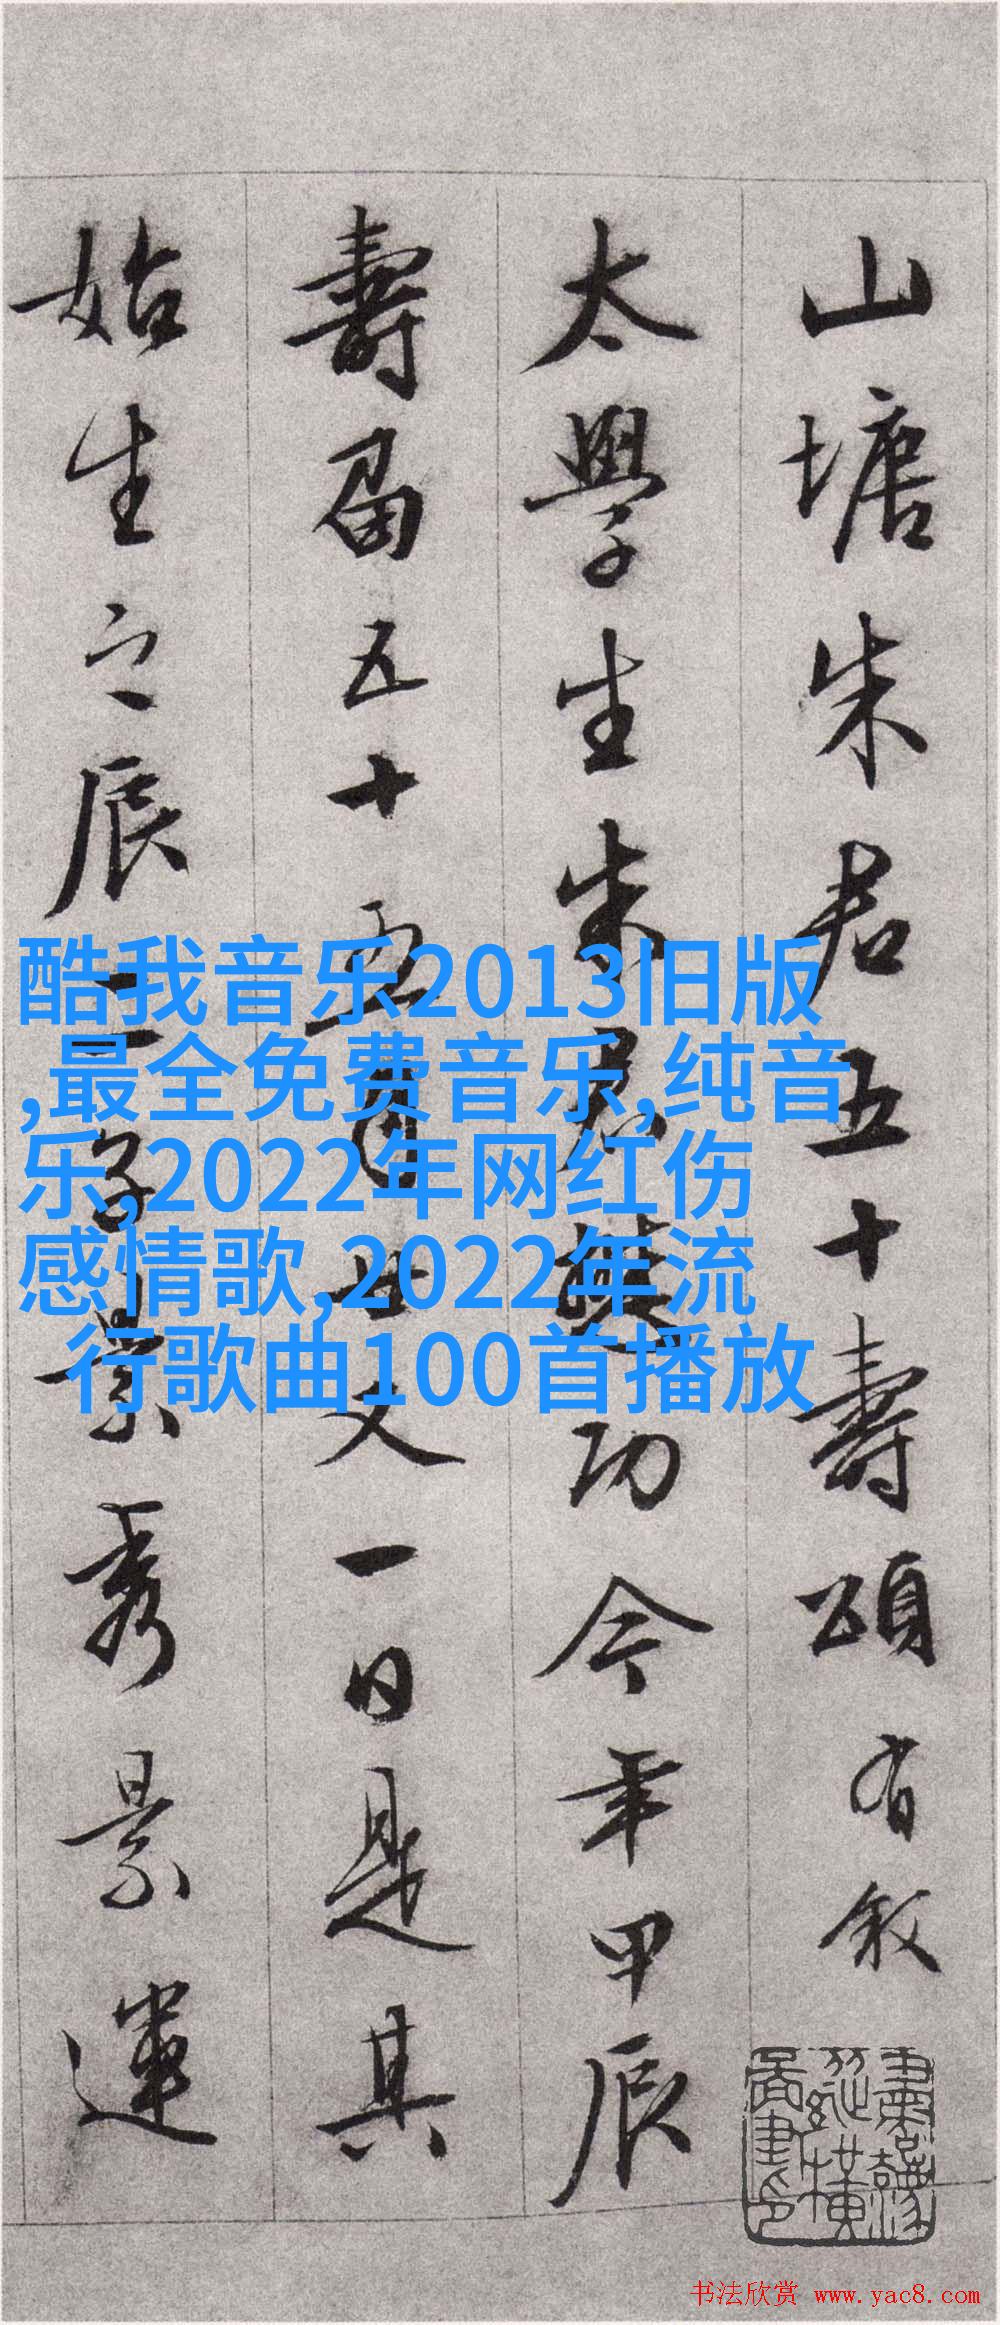 山塘朱君五十壽頌有敘
太學生朱君
功今年甲辰
壽届五十
又一日是其
始生之辰
景秀景運
酷我音乐2013旧版
,最全免费音乐,纯音
乐,2022年网红伤
感情歌,2022年流
行歌曲100首播放
书法欣赏 www.yac8.com